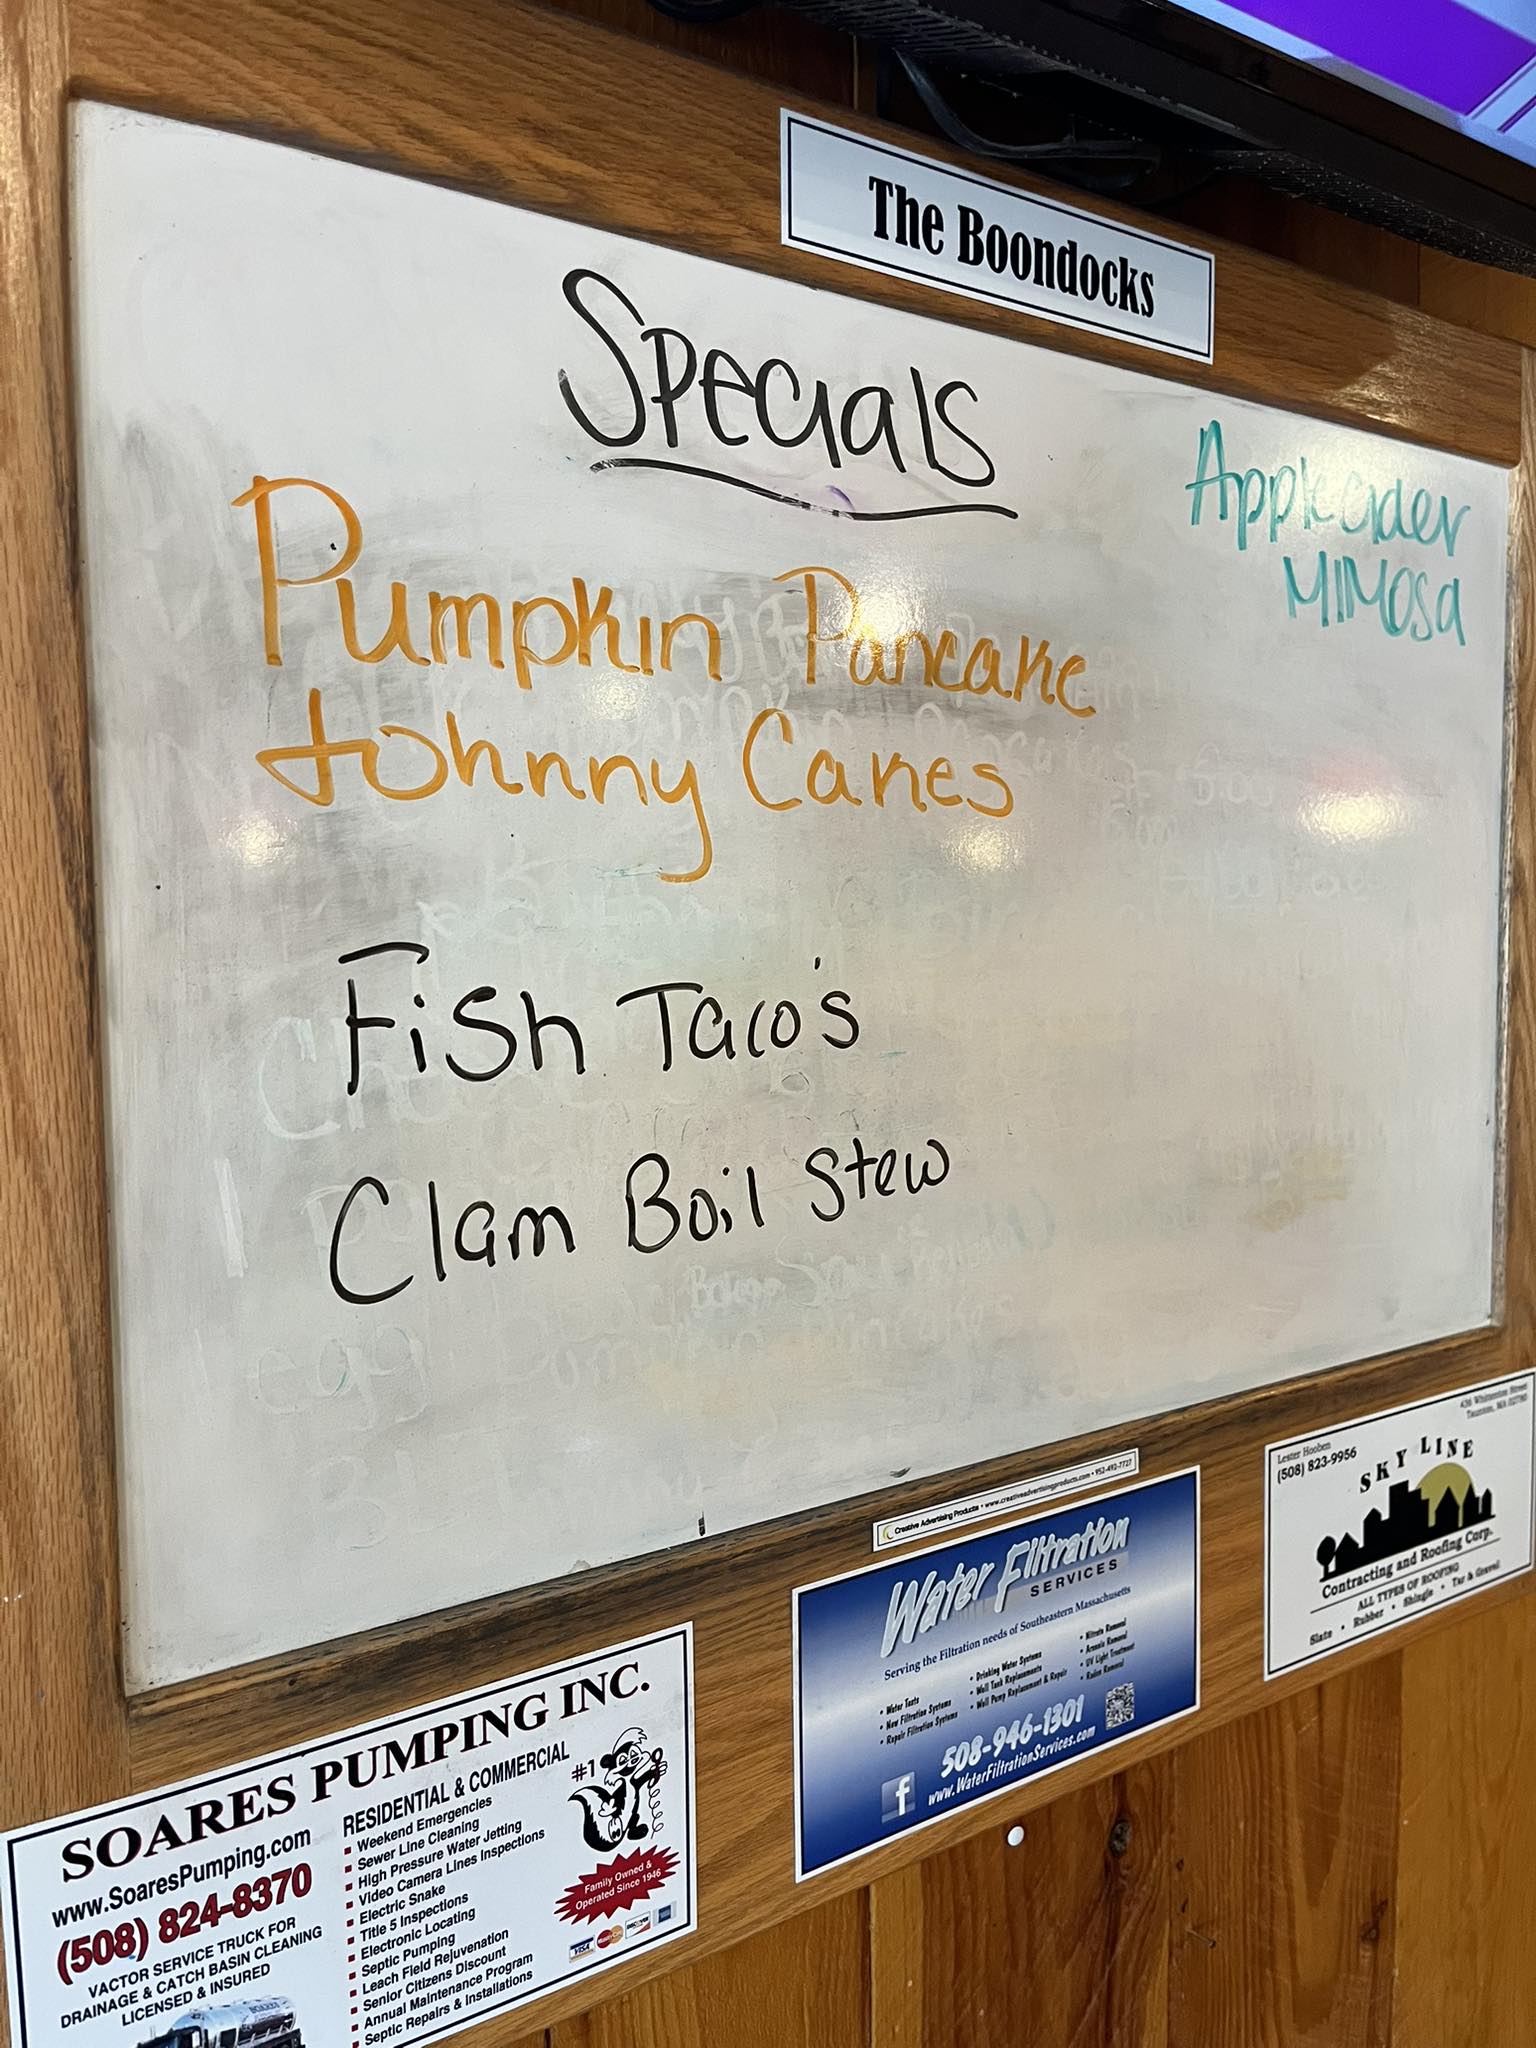 The Boondocks
Specials
Apple cider
MIMOSA
Pumpkin Pancake
Johnny Cakes
Fish Taco's
Clam Boil Stew
Creative Advertising Products • www.creativeadvertisingproducts.com • 952-492-7727
SOARES PUMPING INC.
www.SoaresPumping.com
(508) 824-8370
VACTOR SERVICE TRUCK FOR
DRAINAGE & CATCH BASIN CLEANING
LICENSED & INSURED
RESIDENTIAL & COMMERCIAL
Weekend Emergencies
Sewer Line Cleaning
High Pressure Water Jetting
Video Camera Lines Inspections
Electric Snake
Title 5 Inspections
Electronic Locating
Septic Pumping
Leach Field Rejuvenation
Senior Citizens Discount
Annual Maintenance Program
Septic Repairs & Installations
#1
Family Owned &
Operated Since 1946
VISA MasterCard DISCOVER
Water Filtration
SERVICES
Serving the Filtration needs of Southeastern Massachusetts
• Water Tests
• New Filtration Systems
• Repair Filtration Systems
• Drinking Water Systems
• Well Tank Replacements
• Well Pump Replacement & Repair
• Nitrate Removal
• Arsenic Removal
• UV Light Treatment
• Radon Removal
508-946-1301
www.WaterFiltrationServices.com
f
Lester Hooben
(508) 823-9956
436 Whittenton Street
Taunton, MA 02780
SKY LINE
Contracting and Roofing Corp.
ALL TYPES OF ROOFING
Slate • Rubber • Shingle • Tar & Gravel